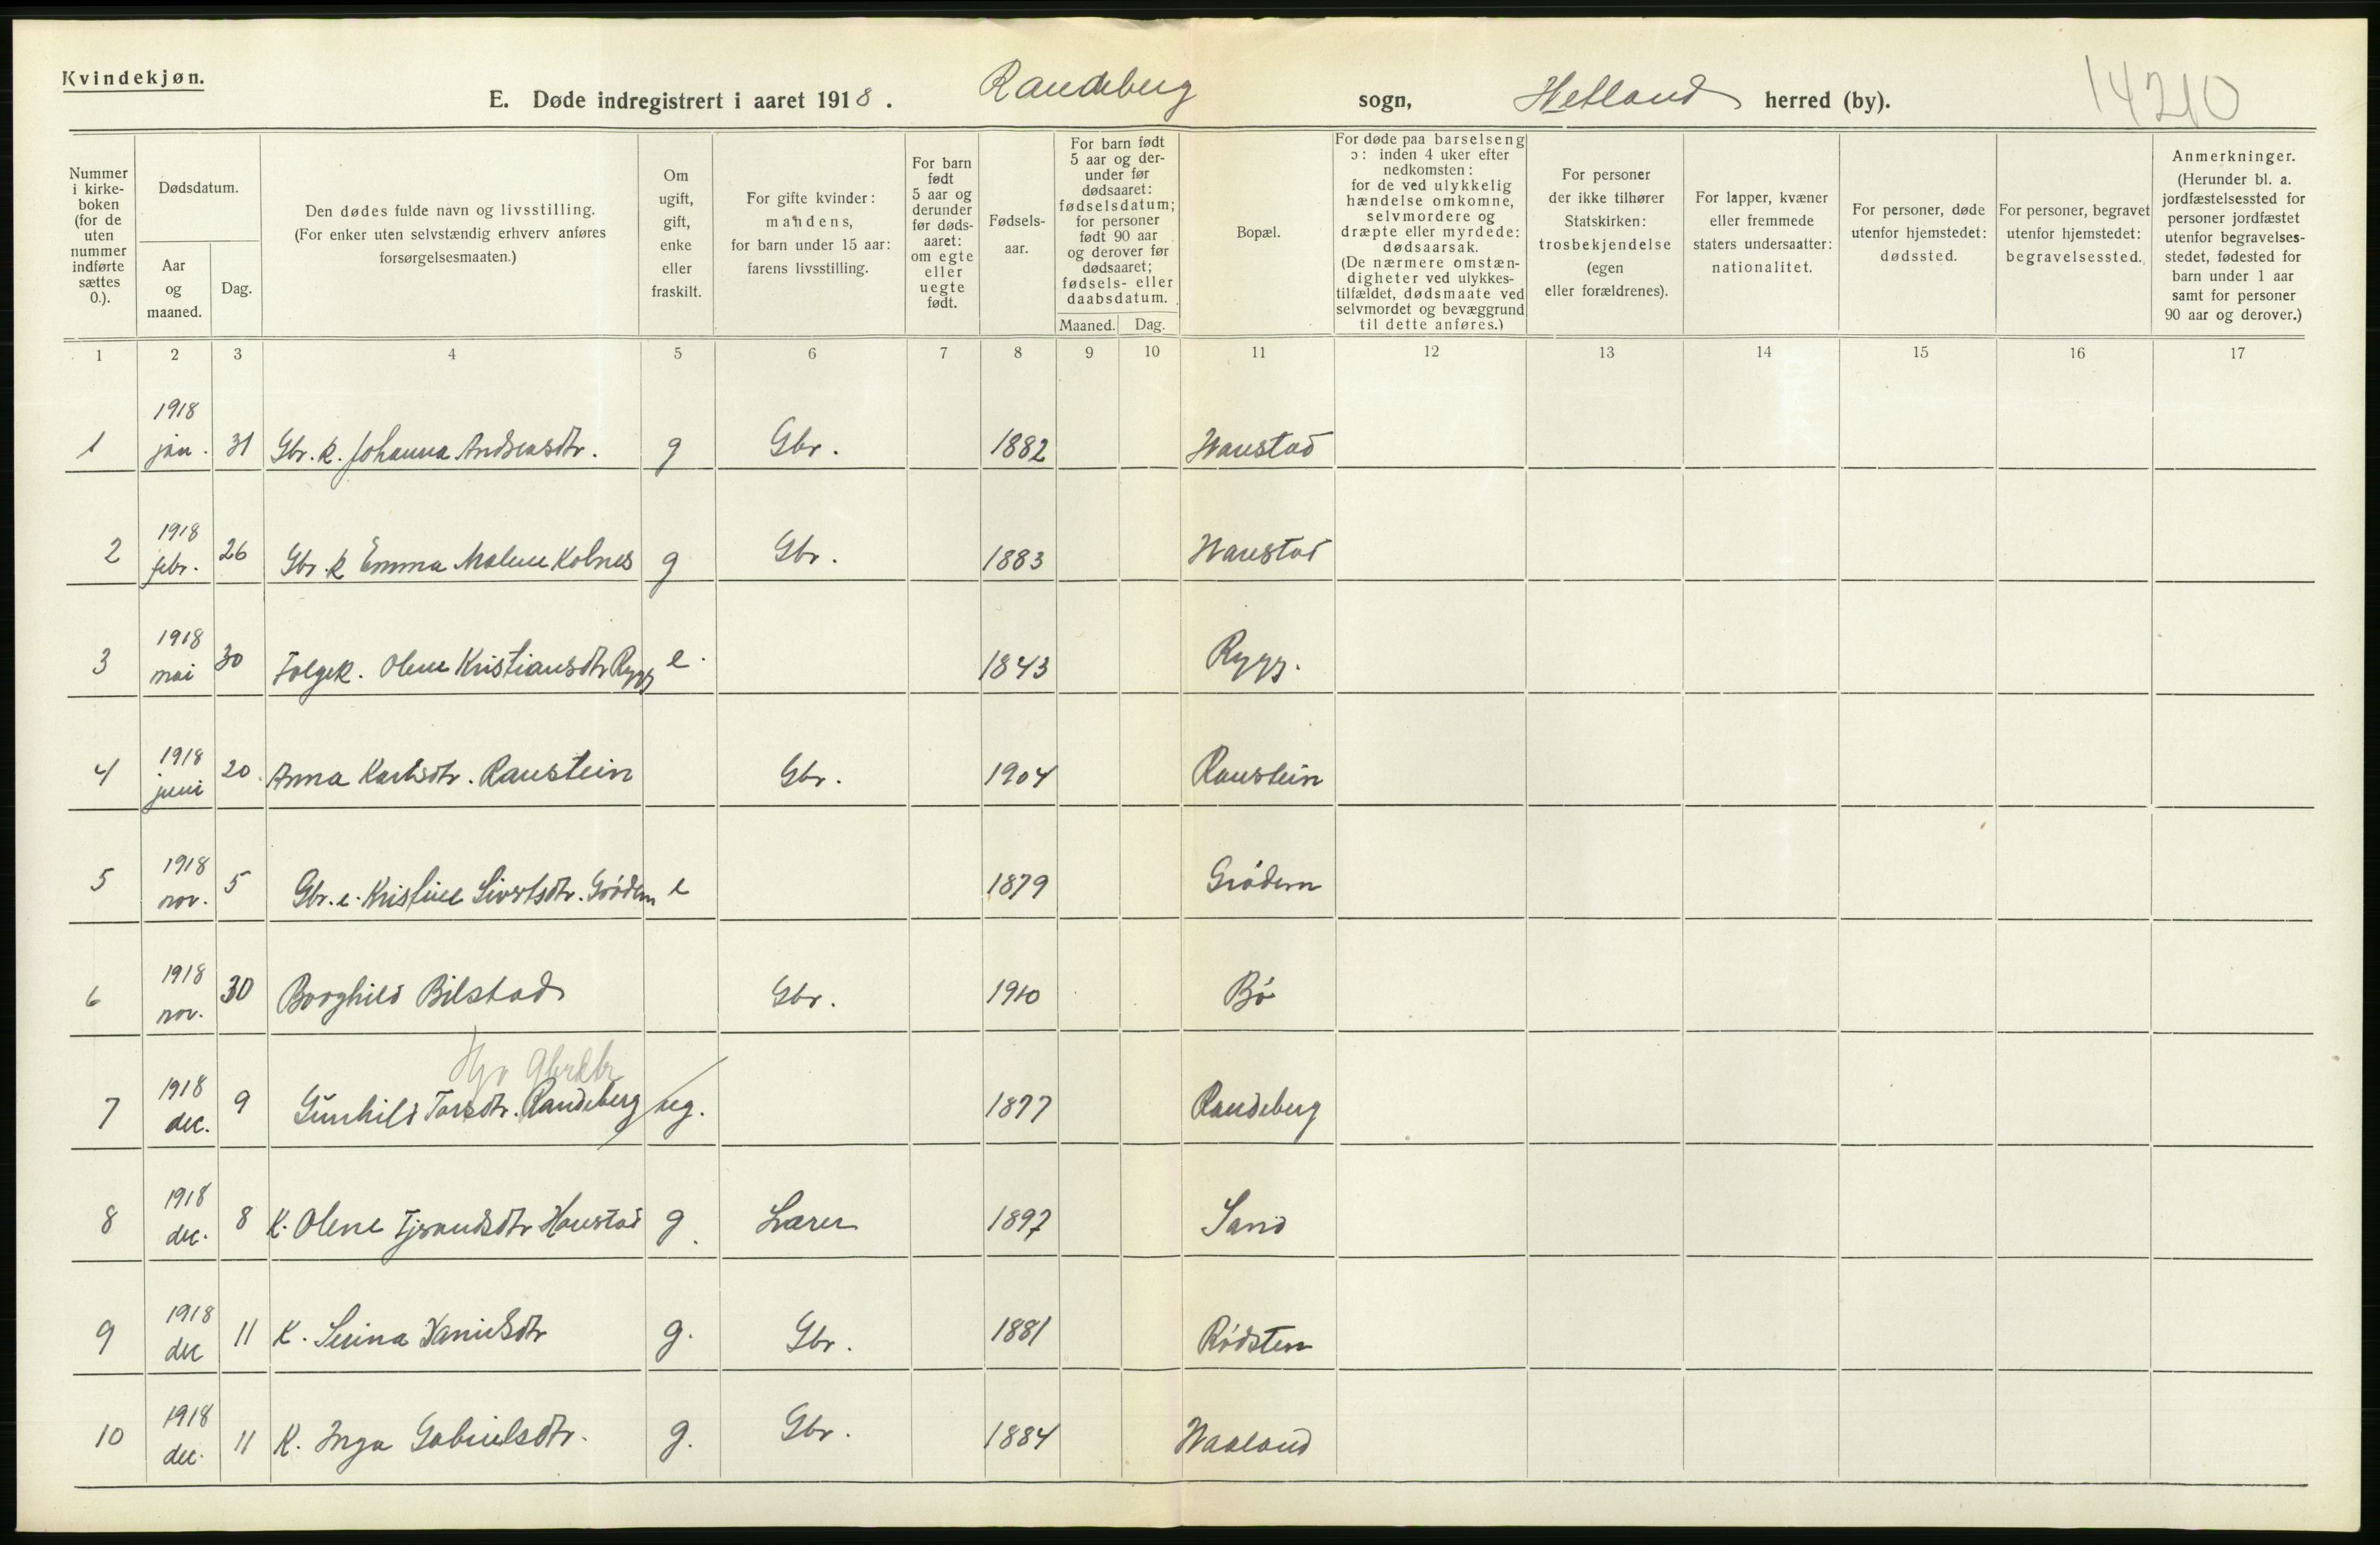 Kvindekjøn.
E. Døde indregistrert i aaret 1918. Randeberg sogn, Hetland herred (by). 14210
Nummer i kirke-boken (for de uten nummer indførte sættes 0.).
Dødsdatum.
Aar og maaned.
Dag.
Den dødes fulde navn og livsstilling. (For enker uten selvstændig erhverv anføres forsørgelsesmaaten.)
Om ugift, gift, enke eller fraskilt.
For gifte kvinder: mandens, for barn under 15 aar: farens livsstilling.
For barn født 5 aar og derunder før døds-aaret: om egte eller uegte født.
Fødsels-aar.
For barn født 5 aar og der-under før dødsaaret: fødselsdatum; for personer født 90 aar og derover før dødsaaret; fødsels- eller daabsdatum.
Maaned. Dag.
Bopæl.
For døde paa barselseng ɔ: inden 4 uker efter nedkomsten: for de ved ulykkelig hændelse omkomne, selvmordere og dræpte eller myrdede: dødsaarsak. (De nærmere omstæn-digheter ved ulykkes-tilfældet, dødsmaate ved selvmordet og bevæggrund til dette anføres.)
For personer der ikke tilhører Statskirken: trosbekjendelse (egen eller forældrenes).
For lapper, kvæner eller fremmede staters undersaatter: nationalitet.
For personer, døde utenfor hjemstedet: dødssted.
For personer, begravet utenfor hjemstedet: begravelsessted.
Anmerkninger. (Herunder bl. a. jordfæstelsessted for personer jordfæstet utenfor begravelses-stedet, fødested for barn under 1 aar samt for personer 90 aar og derover.)
1 2 3 4 5 6 7 8 9 10 11 12 13 14 15 16 17
1 1918 jan. 31 Gbr. k. Johanna Andreasdtr. g Gbr. 1882 Harestad
2 1918 febr. 26 Gbr. k Emma Malene Kolnes g Gbr. 1883 Harestad
3 1918 mai 30 Folgek. Olene Kristiansdtr Rygg e. 1843 Rygg.
4 1918 juni 20. Anna Karlsdtr. Raustein Gbr. 1904 Raustein
5 1918 nov. 5 Gbr. e. Kristine Sivertsdtr. Grødem e 1879 Grødem
6 1918 nov. 30 Borghild Bilstad Gbr. 1910 Bø
7 1918 dec. 9 Gunhild Torsdtr. Randeberg ug. 1877 Randeberg
8 1918 dec. 8 K. Olene Tjerandsdtr Harestad g. Lærer 1897 Sand
9 1918 dec 11 K. Serina Danielsdtr g. Gbr. 1881 Rødsten
10 1918 dec. 11 K. Inga Gabrielsdtr. g. Gbr. 1884 Waaland